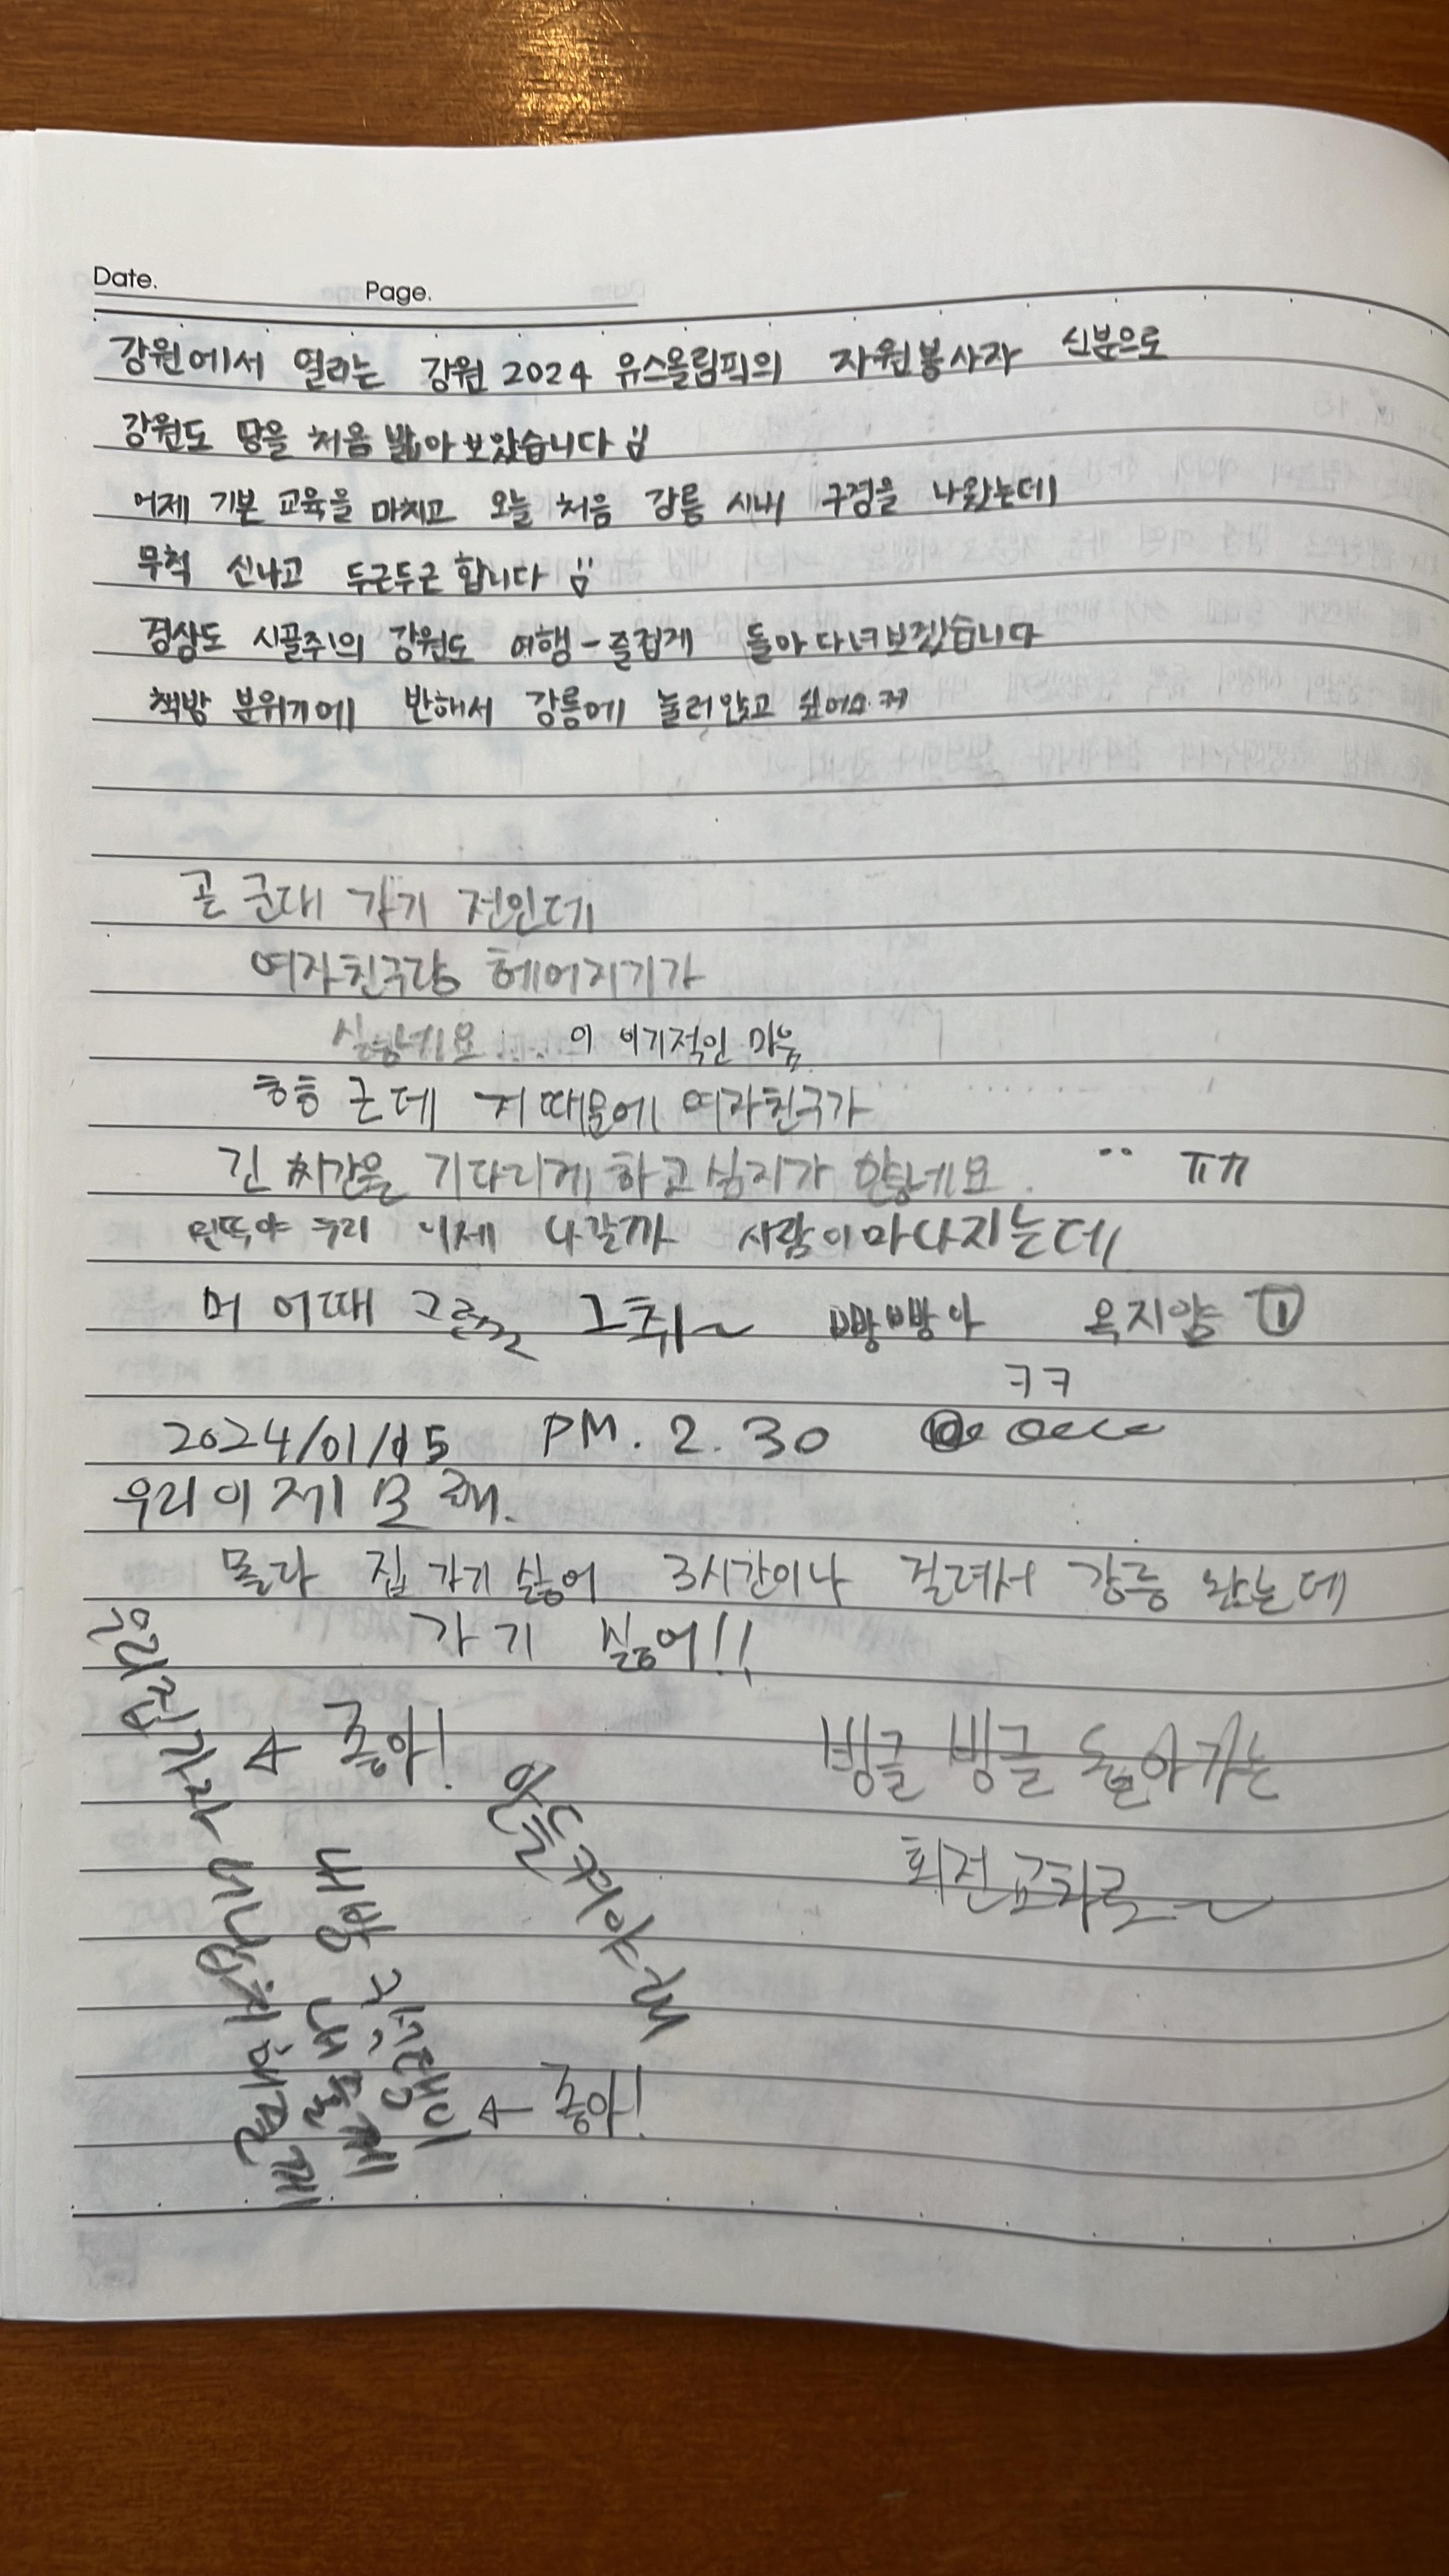 Date.
Page.
강원에서 열리는 강원 2024 유스올림픽의 자원봉사자 신분으로
강원도 땅을 처음 밟아 보았습니다
어제 기본 교육을 마치고 오늘 처음 강릉 시내 구경을 나왔는데
무척 신나고 두근두근 합니다
경상도 시골쥐의 강원도 여행 - 즐겁게 돌아다녀보겠습니다
책방 분위기에 반해서 강릉에 눌러앉고 싶어요 ㅋㅋ
곧 군대 가기 전인데
여자친구랑 헤어지기가
싫네요..... 이 이기적인 마음
흠흠 근데 저 때문에 여자친구가
긴 시간을 기다리게 하고 싶지가 않네요. ㅠㅠ
우리 이제 나갈까 사람이 많아지는데
머 어때 그취~ 빵빵아 옥지얌
ㅋㅋ
2024/01/15 PM. 2. 30
우리 이제 모해.
몰라 집 가기 싫어 3시간이나 걸려서 강릉 왔는데
가기 싫어!!
← 좋아!
빙글 빙글 돌아가는
회전
← 좋아!